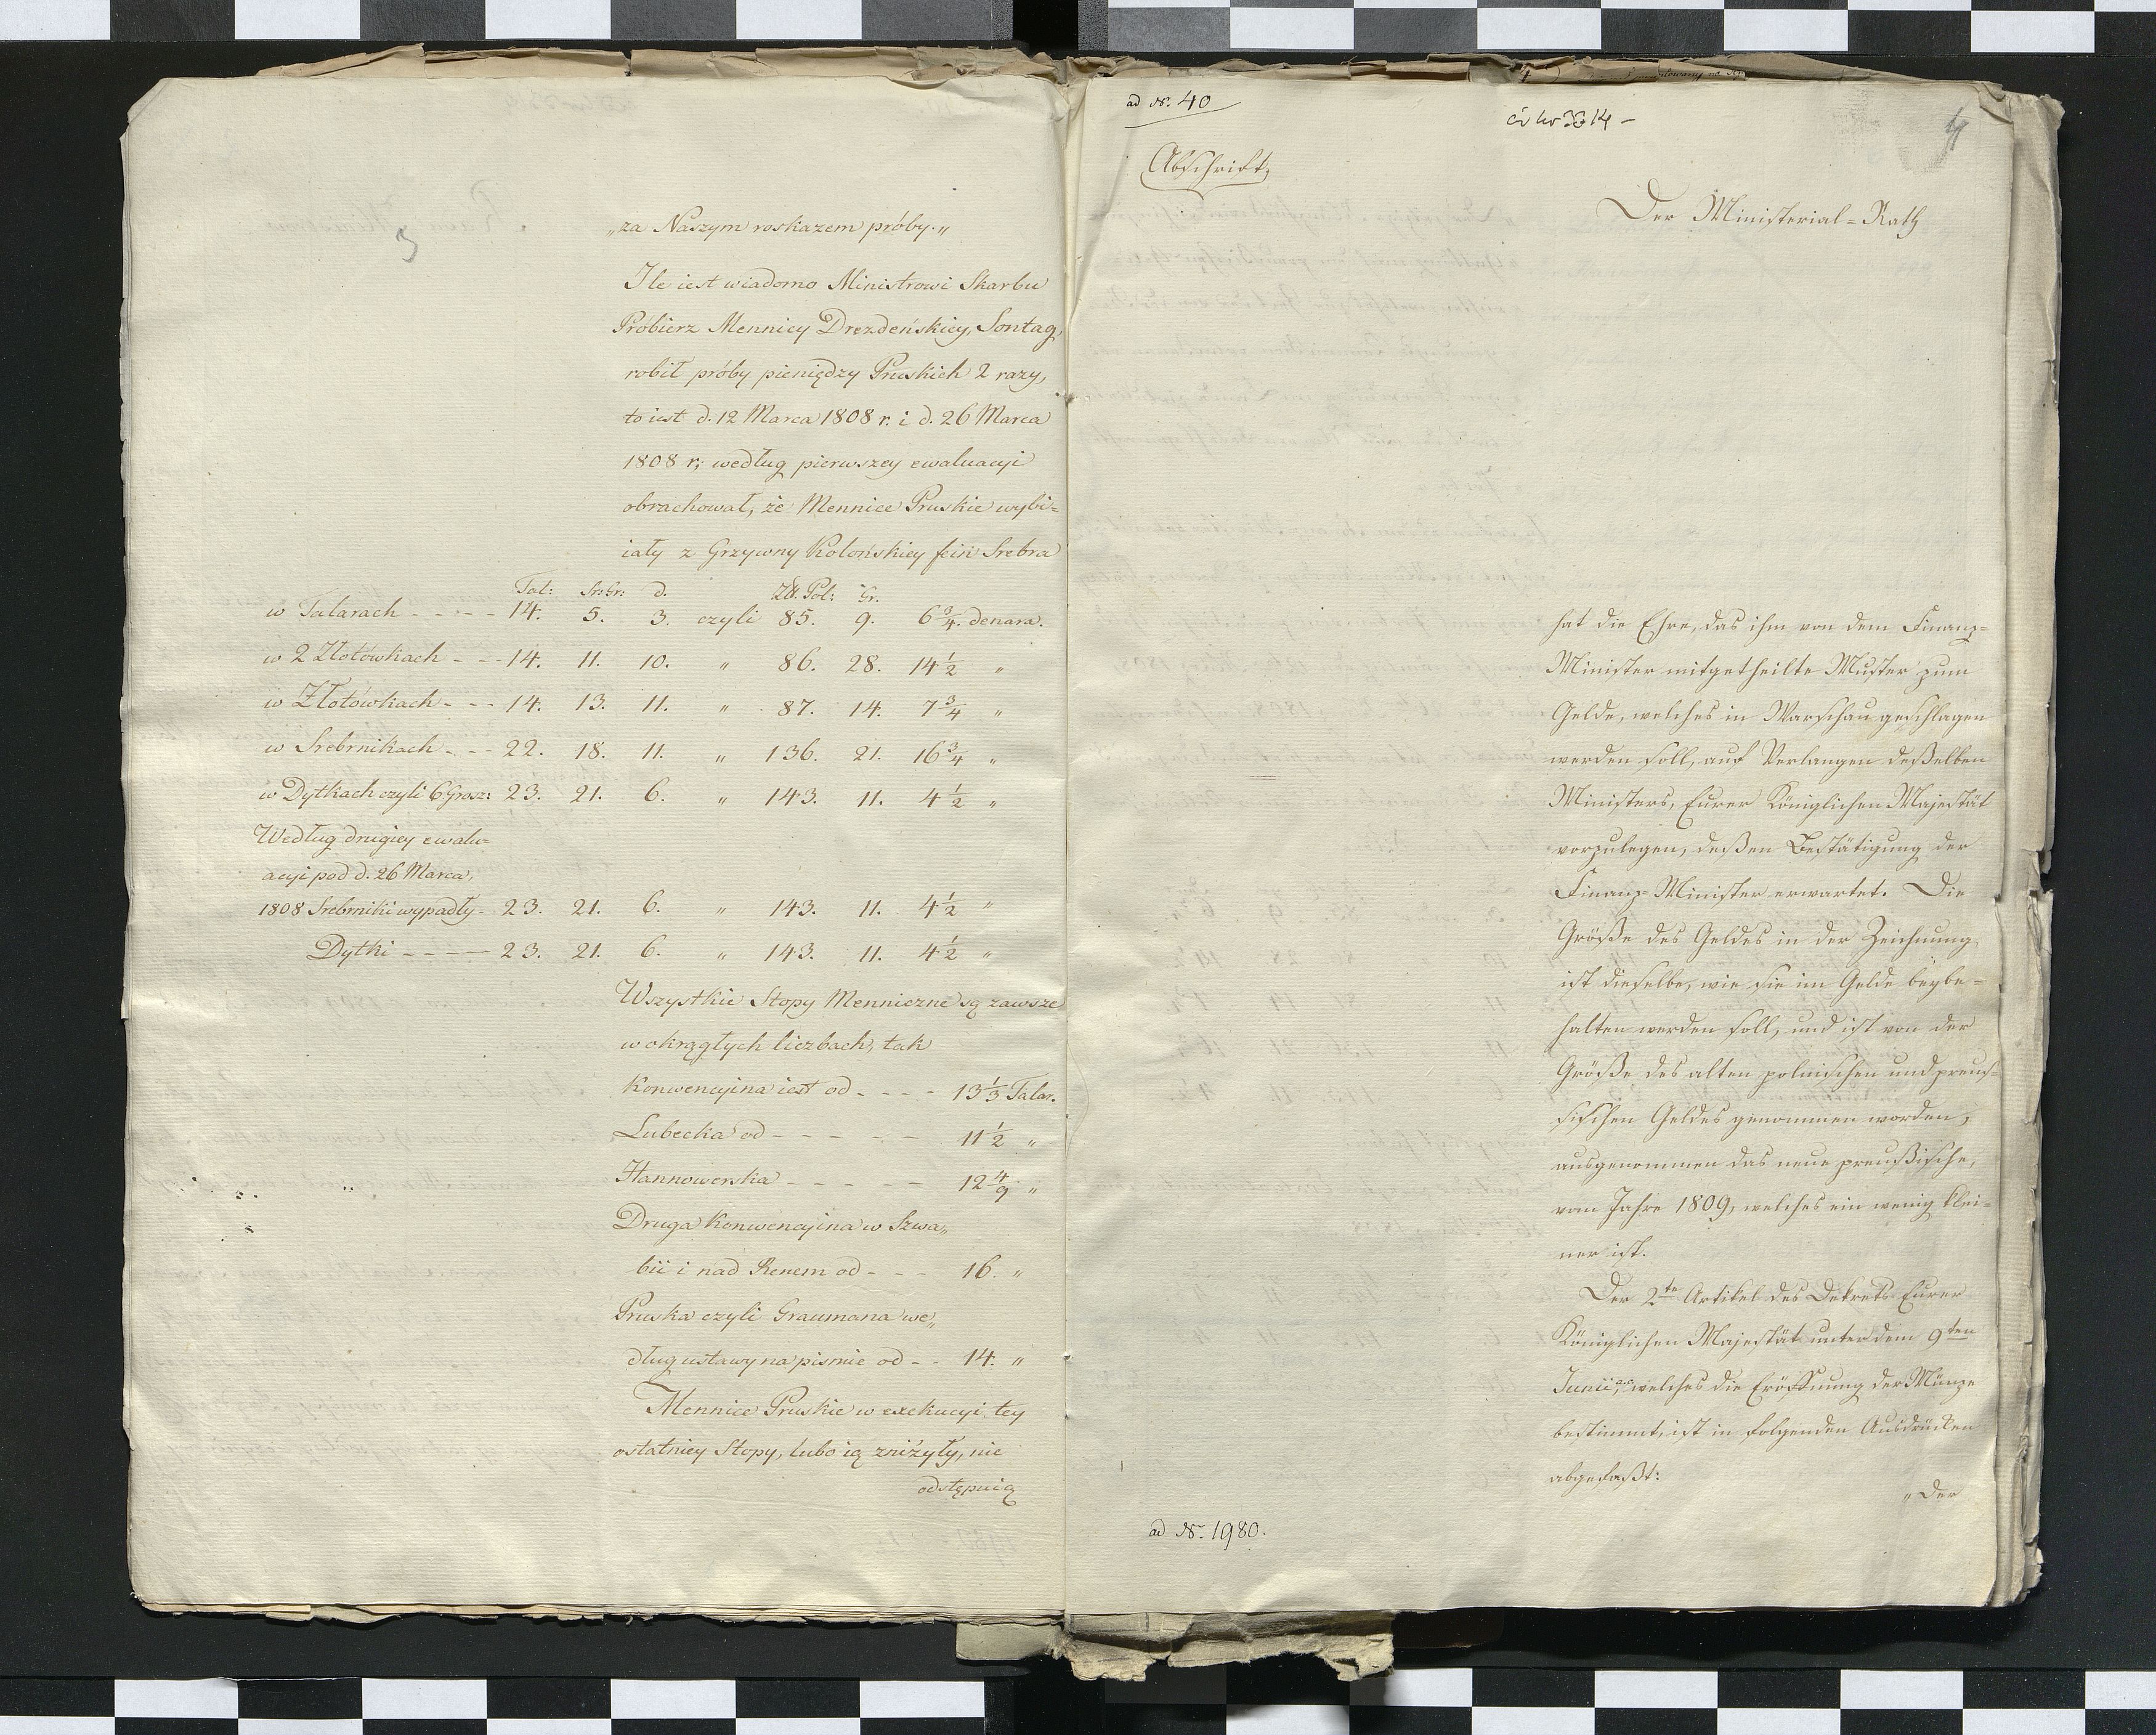 3
„za Naszym roskazem próby.„
Ile iest wiadomo Ministrowi Skarbu
Próbierz Mennicy Drezdeńskiey, Sontag,
robił próby pieniędzy Pruskich 2 razy,
to iest d. 12 Marca 1808 r. i d. 26 Marca
1808 r; według pierwszey ewaluacyi
obrachował, że Mennice Pruskie wybi=
iały z Grzywny Kolońskiey fein Srebra
Tal: Sr:Gr: d. Zł. Pol: Gr.
w Talarach - - - - 14. 5. 3. czyli 85. 9. 6 3/4. denara.
w 2 Złotówkach - - 14. 11. 10. „ 86. 28. 14 1/2 „
w Złotówkach - - - 14. 13. 11. „ 87. 14. 7 3/4 „
w Srebrnikach - - - 22. 18. 11. „ 136. 21. 16 3/4 „
w Dytkach czyli 6 Grosz: 23. 21. 6. „ 143. 11. 4 1/2 „
Według drugiey ewalu=
acyi pod d. 26 Marca,
1808 Srebrniki wypadły - 23. 21. 6. „ 143. 11. 4 1/2 „
Dytki - - - - 23. 21. 6. „ 143. 11. 4 1/2 „
Wszystkie Stopy Mennicze są zawsze
w okrągłych liczbach, tak
Konwencyina iest od - - - - 13 1/3 Talar.
Lubecka od - - - - - 11 1/2 „
Hannowerska - - - - - 12 4/9 „
Druga Konwencyina w Szwa„
bii i nad Renem od - - - 16. „
Pruska czyli Graumana we„
dług ustawy na pismie od - - 14. „
Mennice Pruskie w exekucyi tey
ostatniey Stopy, lubo ią zniżyły, nie
odstępuią
ad N. 40
4
Abschrift
Der Ministerial=Rath
hat die Ehre, das ihm von dem Finanz=
Minister mitgetheilte Muster zum
Gelde, welches in Warschau geschlagen
werden soll, auf Verlangen deßelben
Ministers, Eurer Königlichen Majestät
vorzulegen, deßen Bestätigung der
Finanz=Minister erwartet. Die
Größe des Geldes in der Zeichnung
ist dieselbe, wie sie im Gelde beybe=
halten werden soll, und ist von der
Größe des alten polnischen und preus=
sischen Geldes genommen worden,
ausgenommen das neue preußische,
vom Jahre 1809, welches ein wenig klei=
ner ist.
Der 2te Artikel des Dekrets Eurer
Königlichen Majestät unter dem 9ten
Junii a.c., welches die Eröffnung der Münze
bestimmt, ist in folgenden Ausdrücken
abgefaßt:
„Der
ad N. 1980.